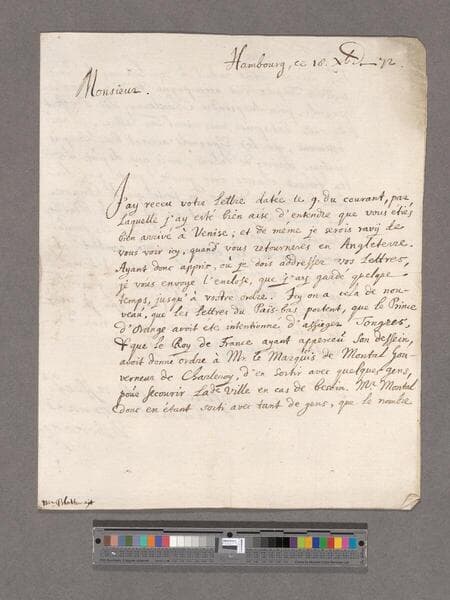 Hambourg, ce 18. Xbr. 72.
Monsieur.
J'ay receu votre Lettre datée le 9. du courant, par
laquelle j'ay esté bien aise d'entendre que vous étiés
bien arrivé à Venise; et de meme je serois ravy de
vous voir icy, quand vous retournerés en Angleterre.
Ayant donc appris, où je dois addresser vos Lettres,
je vous envoye l'encluse, que j'ay gardé quelque
temps, jusqu'à vostre ordre. Icy on a cela de nou-
veau, que les Lettres du Pais-bas portent, que le Prince
d'Orange avoit eté intentionné d'assieger Tongres,
& que le Roy de France ayant apperceu son dessein,
avoit donné ordre à Mr. le Marquis de Montal gou-
verneur de Charleroy, d'en sortir avec quelques gens,
pour secourir La de Ville en cas de besoin. Mr. Montal
donc en étant sorti avec tant de gens, que le nombre